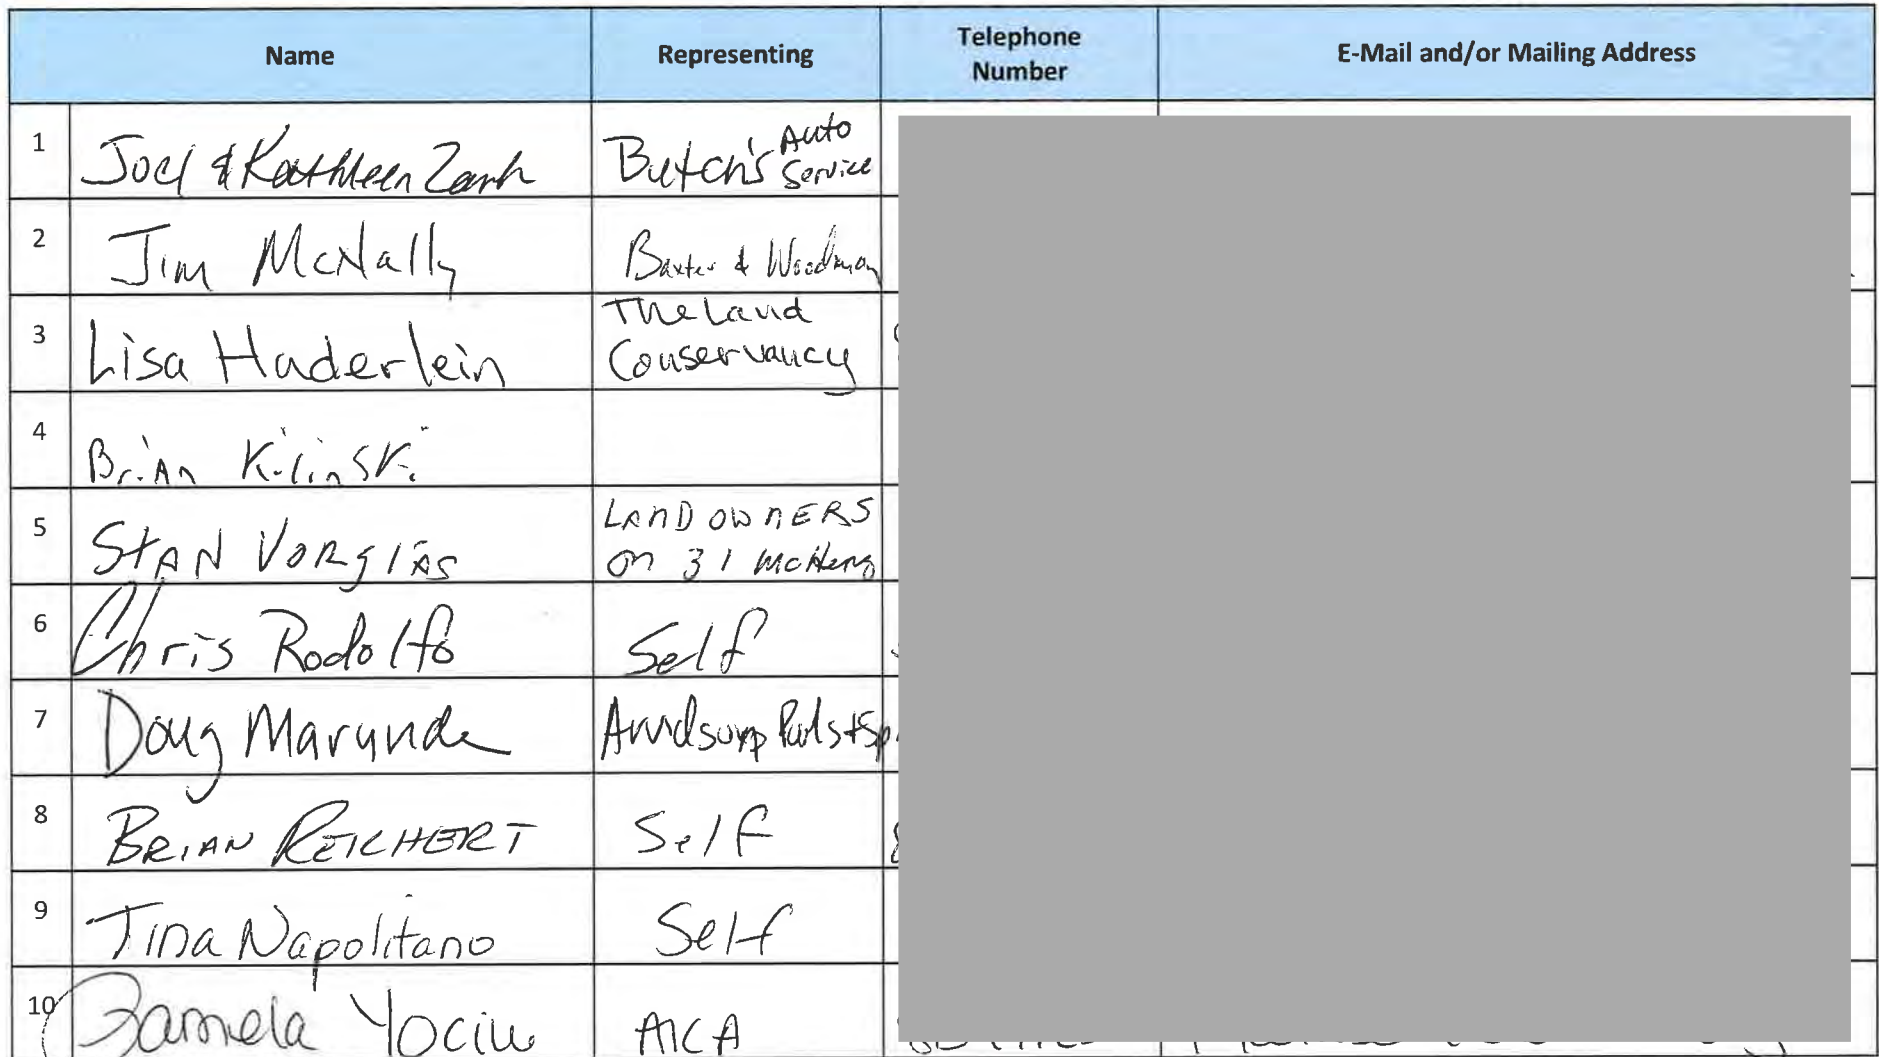 Name Representing Telephone Number E-Mail and/or Mailing Address
1 Joel & Kathleen Butch's Auto Service
2 Jim McNally Baxter & Woodman
3 Lisa Haderlein The Land Conservancy
4 Brian Kilinski
5 STAN VORGIAS LANDOWNERS on 31 McHenry
6 Chris Rodolfo Self
7 Doug Marunde
8 BRIAN REICHERT Self
9 Tina Napolitano Self
10 Pamela